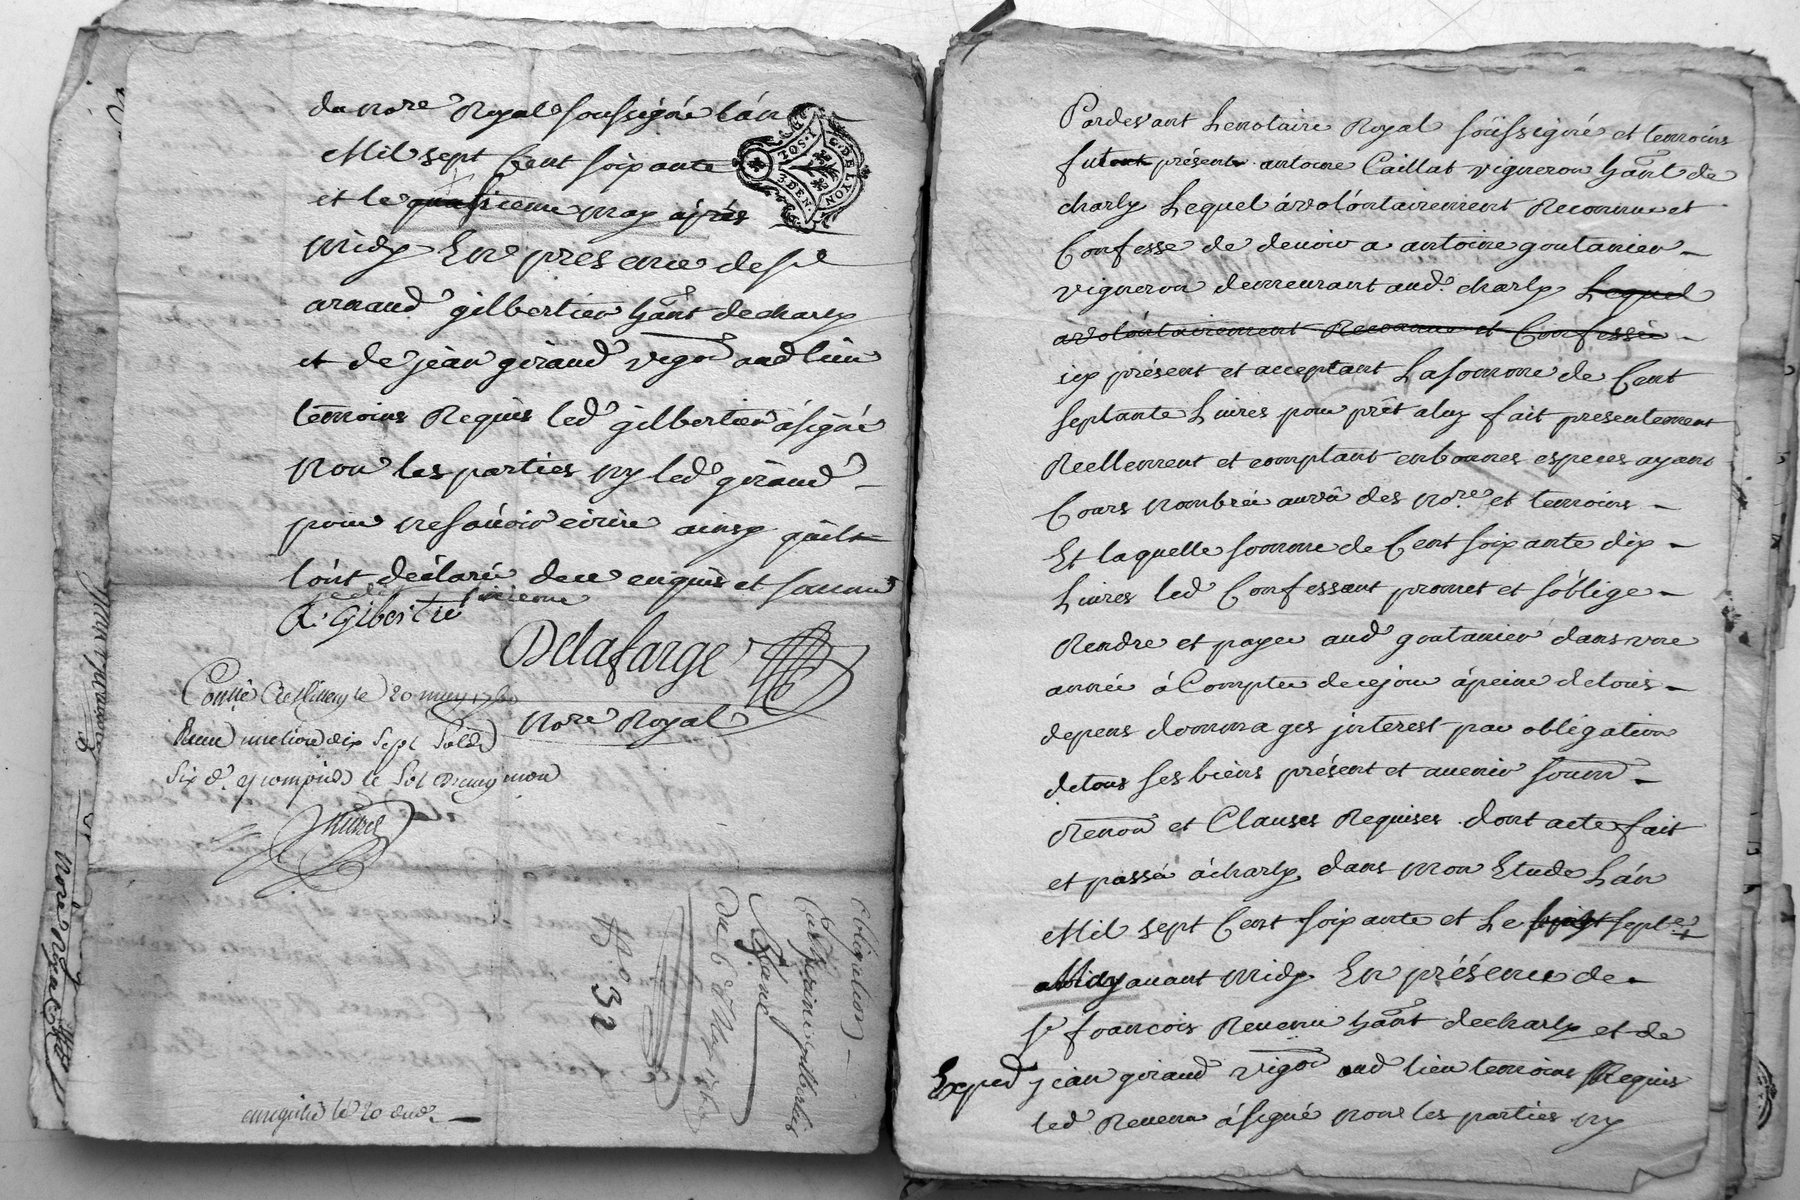 du nore Royal soussigné lán
Mil sept Cent soixante
et le quatrieme may áprés
midy En présence de sr
arnaud gilbertier hant decharly
et de jean giraud vigon aud lieu
temoins Requis led gilbertier ásigné
Non les parties ny led giraud
pour nesavoir écrire ainsy quils
lónt déclaré dece enquis et sommé
A. Gibertié
Delafarge
nore Royal
20 may 1760
Reçu dix sept Sols
Six d.
enregistré le 20 dud.
obligation
Du 6e
N.o 32
G. DE LYON
3. DEN.
Pardevant Lenotaire Royal soussigné et temoins
fut present antoine Caillat vigneron hant de
charly Lequel ávolóntairement Reconnu et
Confesse de devoir a antoine goutanier
vigneron demeurant aud. charly Lequel
avolóntairement Reconnu et Confesse
icy présent et acceptant La somme de Cent
septante Livres pour prêt aluy fait presentement
Reellement et comptant enbonnes especes ayant
Cours Nombrée auvû des Nore. et temoins
Et laquelle somme de Cent soixante dix
Livres led Confessant promet et sóblige
Rendre et payer aud goutanier dans une
année á Compter decejour ápeine detous
depens dommages jnterest par obligation
detous ses biens présent et avenir soum
Renon et Clauses Requises dont acte fait
et passé ácharly dans mon Etude Lán
Mil sept Cent soixante et Le sept
avant midy En présence de
sr francois Revenu hant decharly et de
Exped jean giraud vigon aud lieu temoins Requis
led Revenu ásigné non les parties ny